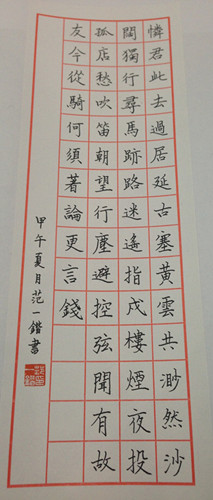 憐君此去過居延古塞黃雲共渺然沙
闊獨行尋馬跡路迷遙指戍樓煙夜投
孤店愁吹笛朝望行塵避控弦聞有故
友今從騎何須著論更言錢
甲午夏月范一鍇書